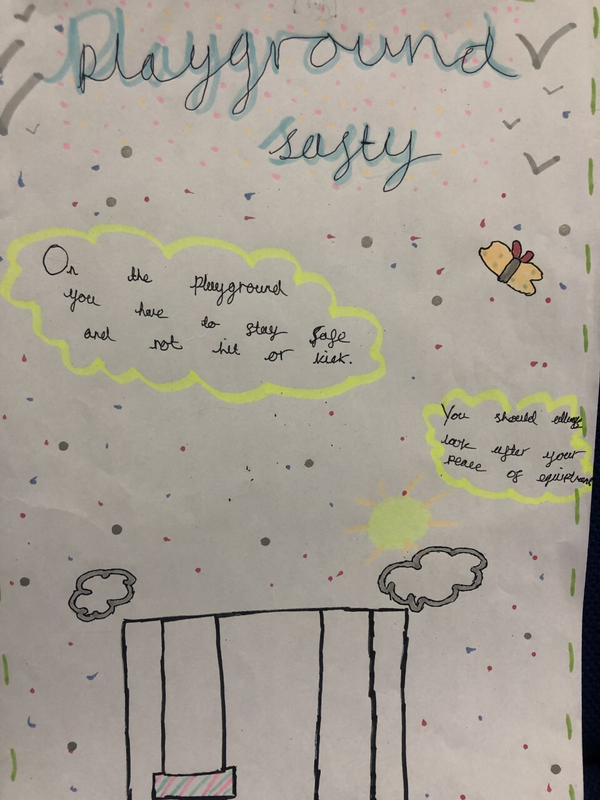 Playground
safty
On the playground
you have to stay safe
and not hit or kick.
You should allways
look after your
peace of equiptment